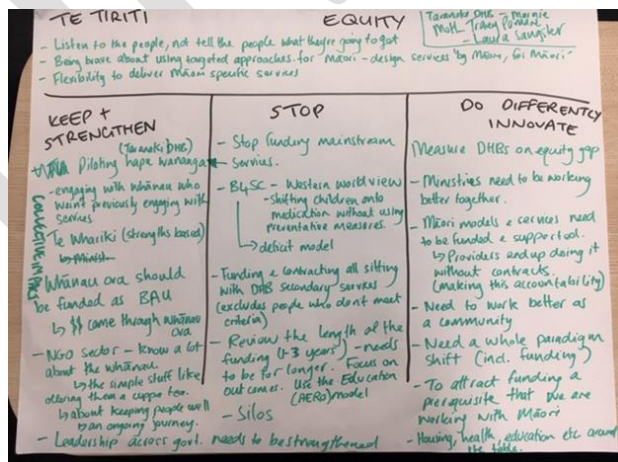 TE TIRITI
EQUITY
Taranaki DHB - Marnie
MoH Tracy
- Laura Langster
- Listen to the people, not tell the people what they're going to get
- Being brave about using targeted approaches for Māori - design services "by Māori, for Māori"
- Flexibility to deliver Māori specific services
KEEP +
STRENGTHEN
(Taranaki DHB)
Piloting hapu wananga
- engaging with whānau who
weren't previously engaging with
services
Te Whariki (strengths based)
Whānau ora should
be funded as BAU
↳ $$ come through whānau
ora
- NGO sector - know a lot
about the whānau.
↳ the simple stuff like
offering them a cuppa tea.
↳ about keeping people well
↳ an ongoing journey.
- Leadership across govt. needs to be strengthened
COLLECTIVE IMPACT
STOP
- Stop funding mainstream
services.
- B4SC - Western worldview
- shifting children onto
medication without using
preventative measures.
↳ deficit model
- Funding & contracting all sitting
with DHB secondary services
(excludes people who dont meet
criteria)
- Review the length of the
funding (1-3 years) - needs
to be for longer. Focus on
outcomes. Use the Education
(AERO) model
- Silos
DO DIFFERENTLY
INNOVATE
Measure DHBs on equity gap
- Ministries need to be working
better together.
- Māori models & services need
to be funded & supported.
↳ Providers end up doing it
without contracts.
(making this accountability)
- Need to work better as
a community
- Need a whole paradigm
shift (incl. funding)
- To attract funding a
prerequisite that we are
working with Māori
- Housing, health, education etc around
the table.